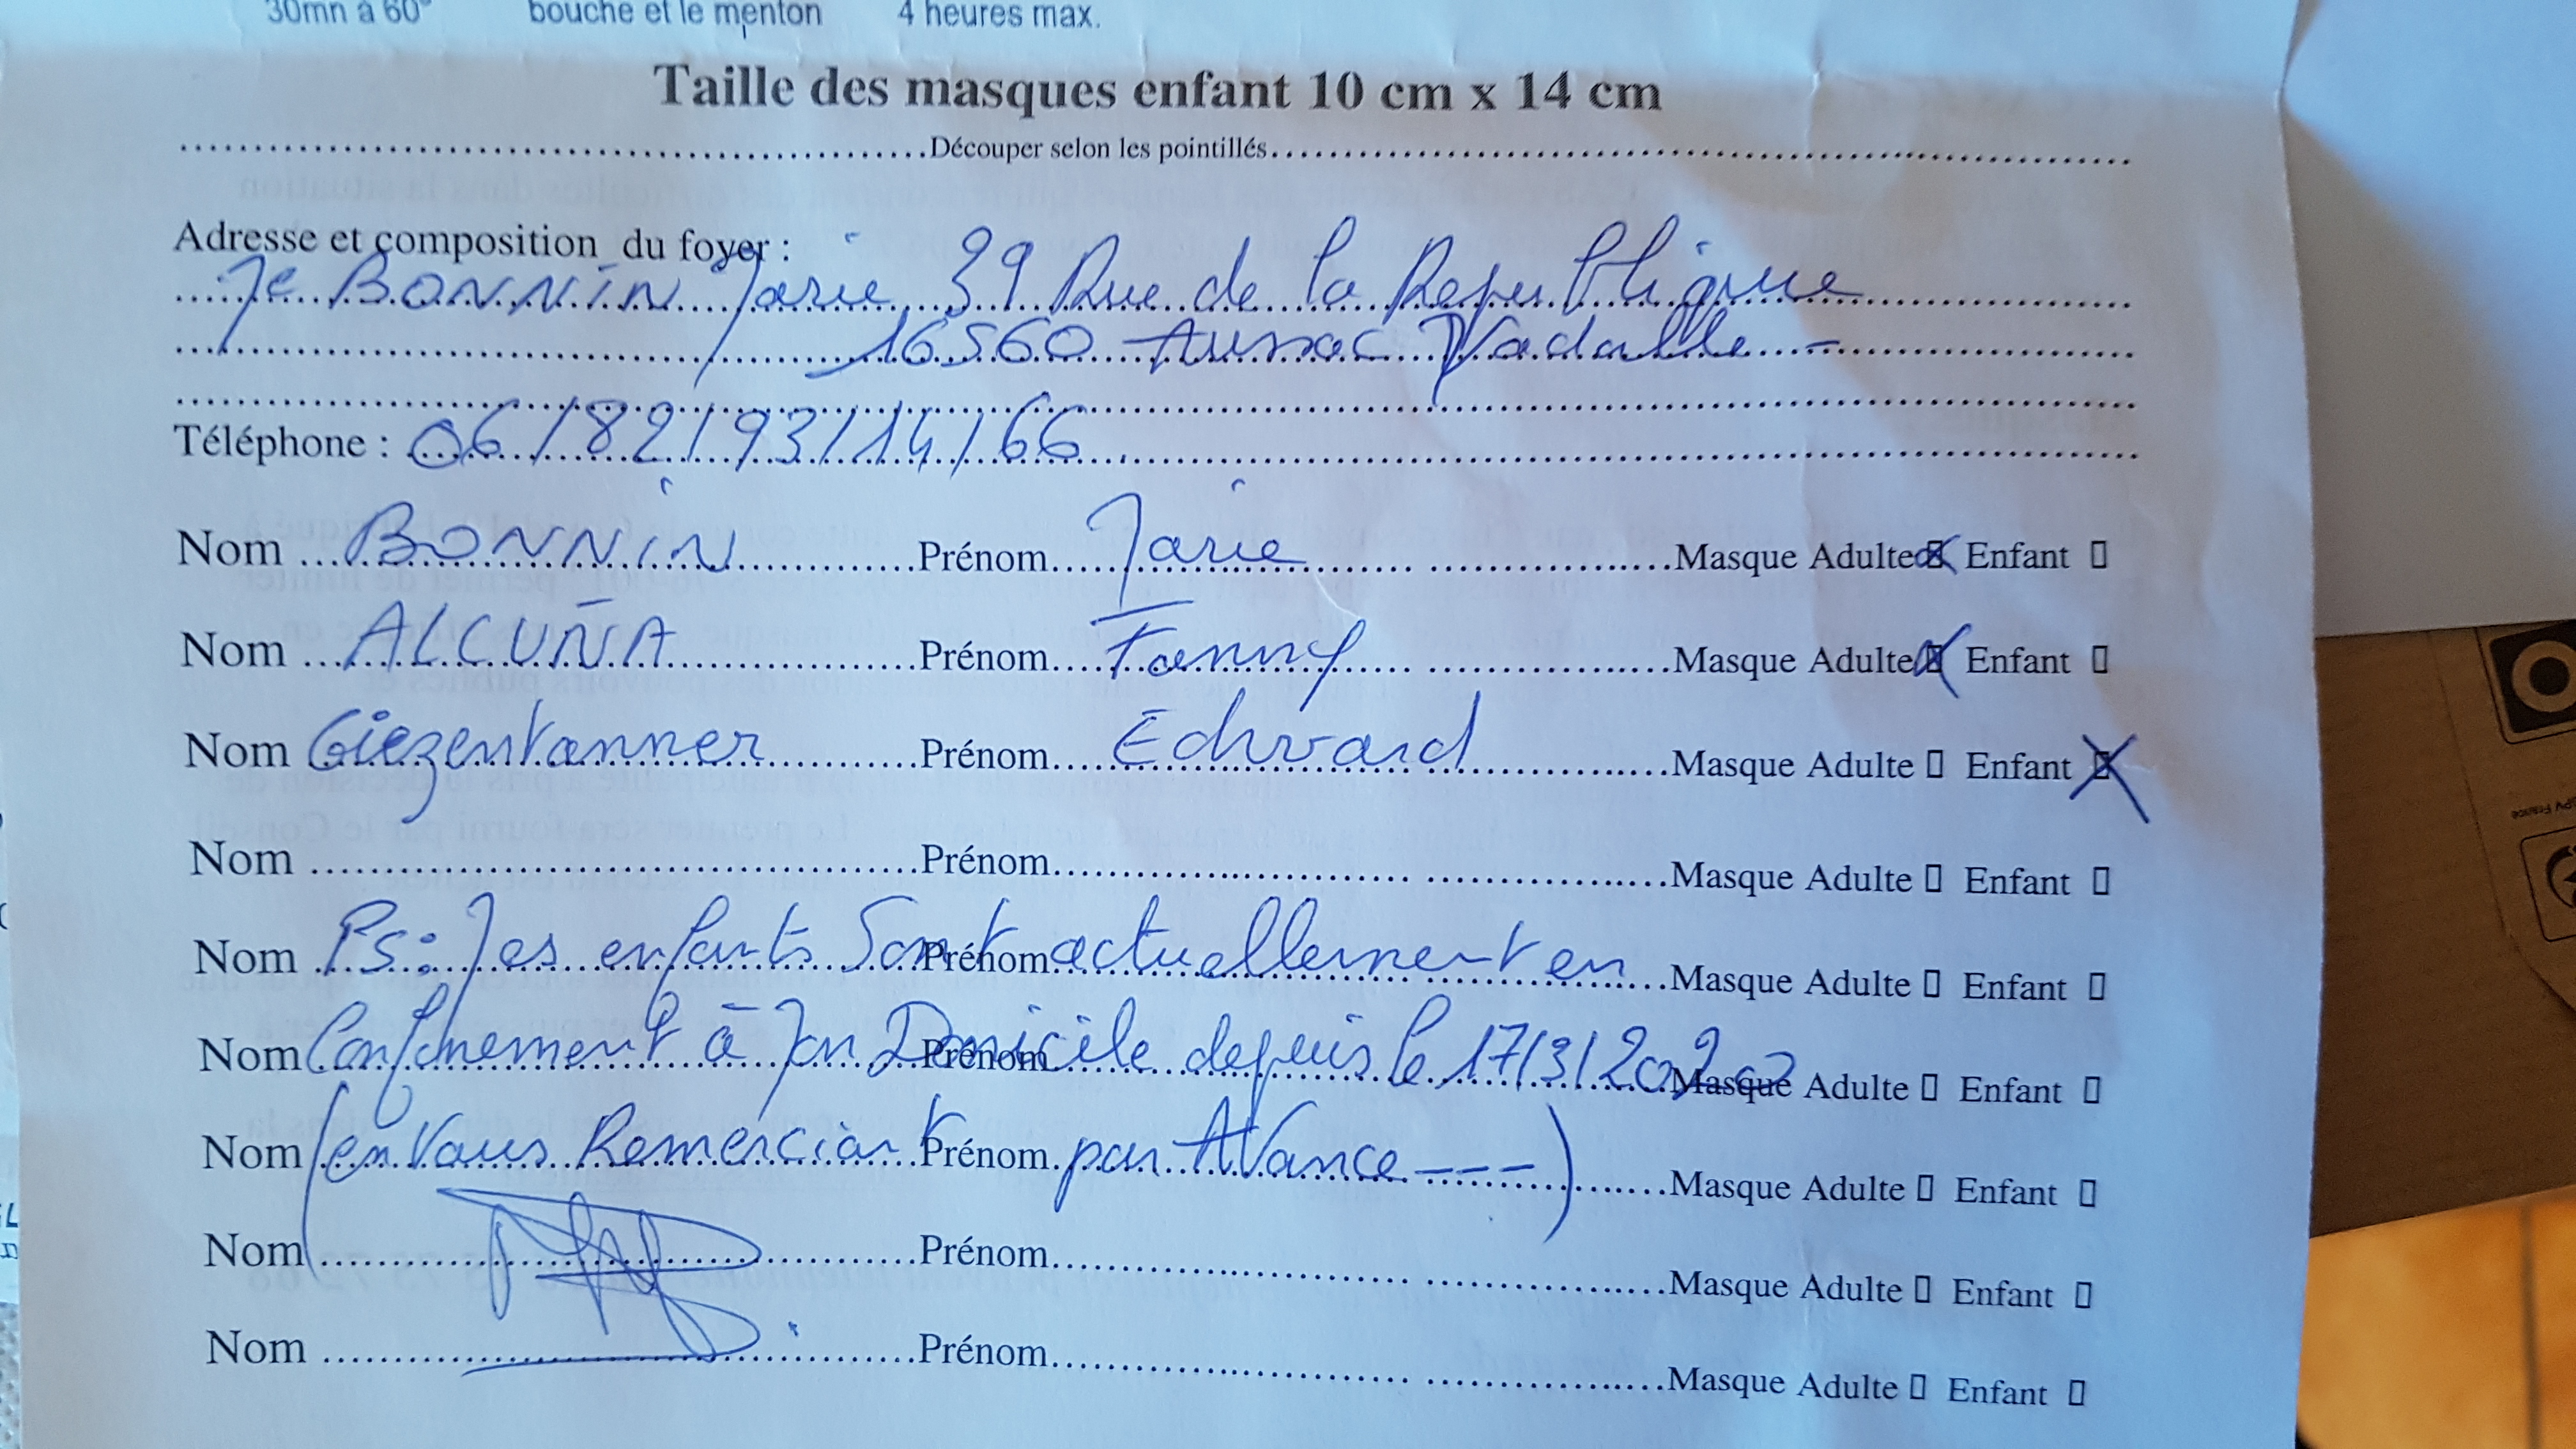 30mn à 60° bouche et le menton 4 heures max.
Taille des masques enfant 10 cm x 14 cm
Découper selon les pointillés
Adresse et composition du foyer :
Me BONNIN Marie 39 Rue de la Republique
16560 Aussac Vadalle -
Téléphone : 06/82/93/14/66
Nom BONNIN Prénom Marie Masque Adulte Enfant
Nom ALCUÑA Prénom Fanny Masque Adulte Enfant
Nom Giezentanner Prénom Edward Masque Adulte Enfant
Nom Prénom Masque Adulte Enfant
Nom PS: Mes enfants Sont Prénom actuellement en Masque Adulte Enfant
Nom Confinement à Mon Domicile Prénom depuis le 17/3/2020 Masque Adulte Enfant
Nom (en Vous Remerciant Prénom par AVance ---) Masque Adulte Enfant
Nom Prénom Masque Adulte Enfant
Nom Prénom Masque Adulte Enfant